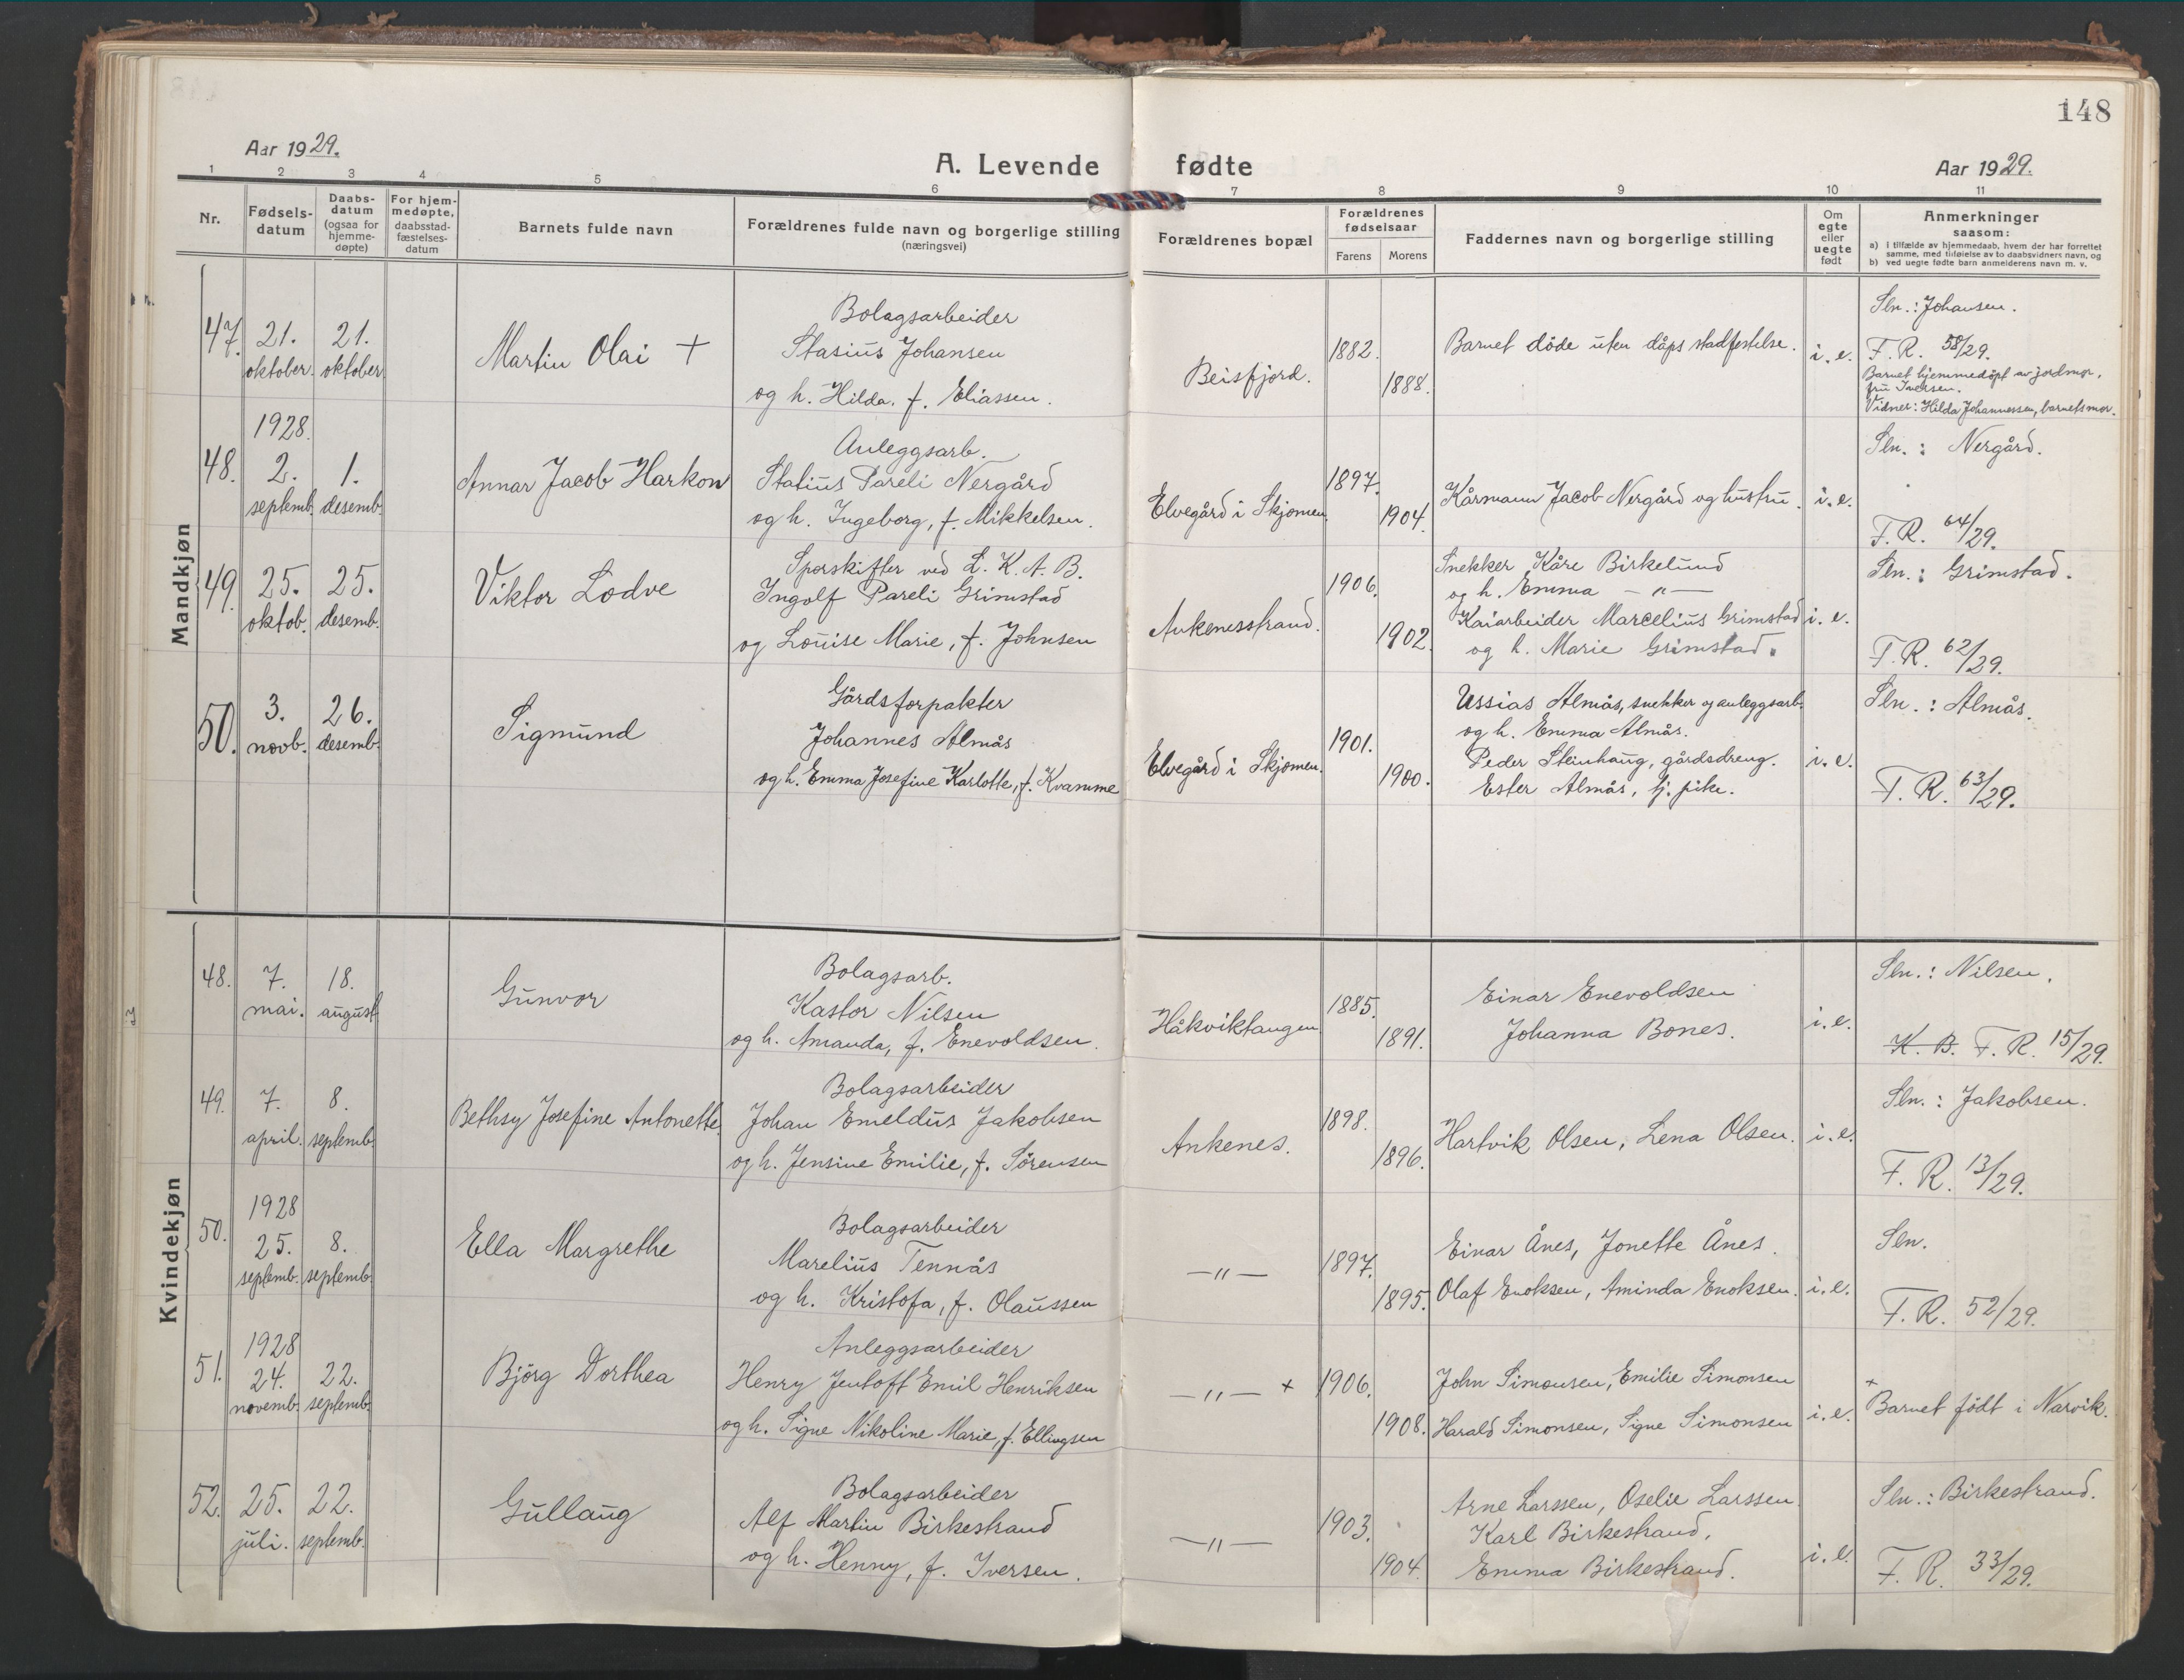 148
Aar 1929.
A. Levende fødte
Aar 1929.
1 2 3 4 5 6 7 8 9 10 11
Nr.
Fødsels-
datum
Daabs-
datum
(ogsaa for
hjemme-
døpte)
For hjem-
medøpte,
daabsstad-
fæstelses-
datum
Barnets fulde navn
Forældrenes fulde navn og borgerlige stilling
(næringsvei)
Forældrenes bopæl
Forældrenes
fødselsaar
Farens Morens
Faddernes navn og borgerlige stilling
Om
egte
eller
uegte
født
Anmerkninger
saasom:
a) i tilfælde av hjemmedaab, hvem der har forrettet
samme, med tilføielse av to daabsvidners navn, og
b) ved uegte fødte barn anmelderens navn m. v.
Mandkjøn
47.
21.
oktober.
21.
oktober.
Martin Olai +
Bolagsarbeider
Stasius Johansen
og h. Hilda. f. Eliassen.
Beisfjord.
1882.
1888.
Barnet döde uten dåps stadfestelse.
i. e.
Sln.: Johansen.
F. R. 58/29.
Barnet hjemmedöpt av jordmor,
fru Iversen.
Vidner: Hilda Johannessen, barnets mor.
48.
1928.
2.
septemb.
1.
desemb.
Annar Jacob Harkon
Anleggsarb.
Statius Pareli Nergård
og h. Ingeborg, f. Mikkelsen.
Elvegård i Skjomen.
1897.
1904.
Kårmann Jacob Nergård og hustru.
i. e.
Sln.: Nergård.
F. R. 64/29.
49.
25.
oktob.
25.
desemb.
Viktor Lodve
Sporskifter ved L. K. A. B.
Ingolf Pareli Grimstad
og Louise Marie, f. Johnsen
Ankenesstrand.
1906.
1902.
Snekker Kåre Birkelund
og h. Emma — " —
Kaiarbeider Marcelius Grimstad
og h. Marie Grimstad.
i. e.
Sln.: Grimstad.
F. R. 62/29.
50.
3.
novb.
26.
desemb.
Sigmund
Gårdsforpakter
Johannes Almås
og h. Emma Josefine Karlotte, f. Kvamme
Elvegård i Skjomen.
1901.
1900.
Ussias Almås, snekker og anleggsarb.
og h. Emma Almås.
Peder Steinhaug, gårdsdreng.
Ester Almås, tj. pike.
i. e.
Sln.: Almås.
F. R. 63/29.
Kvindekjøn
48.
7.
mai.
18.
august
Gunvor
Bolagsarb.
Kastor Nilsen
og h. Amanda, f. Enevoldsen.
Håkviktangen
1885.
1891.
Einar Enevoldsen
Johanna Bones.
i. e.
Sln.: Nilsen.
K. B. F. R. 15/29.
49.
7.
april.
8.
septemb.
Bethsy Josefine Antonette.
Bolagsarbeider
Johan Emeldus Jakobsen
og h. Jensine Emilie, f. Sörensen
Ankenes.
1898.
1896.
Hartvik Olsen, Lena Olsen.
i. e.
Sln.: Jakobsen.
F. R. 13/29.
50.
1928
25.
septemb.
8.
septemb.
Ella Margrethe
Bolagsarbeider
Marelius Tennås
og h. Kristofa, f. Olaussen
— " —
1897.
1895.
Einar Ånes, Jonette Ånes.
Olaf Enoksen, Aminda Enoksen.
i. e.
Sln.
F. R. 52/29.
51.
1928
24.
novemb.
22.
septemb.
Bjørg Dorthea
Anleggsarbeider
Henry Jentoft Emil Henriksen
og h. Signe Nikoline Marie, f. Ellingsen
— " — +
1906.
1908.
John Simonsen, Emilie Simonsen
Harald Simonsen, Signe Simonsen
i. e.
+
Barnet födt i Narvik.
52.
25.
juli.
22.
septemb.
Gullaug
Bolagsarbeider
Alf Martin Birkestrand
og h. Henny, f. Iversen.
— " —
1903.
1904.
Arne Larssen, Oselie Larssen.
Karl Birkestrand.
Emma Birkestrand.
i. e.
Sln.: Birkestrand.
F. R. 33/29.